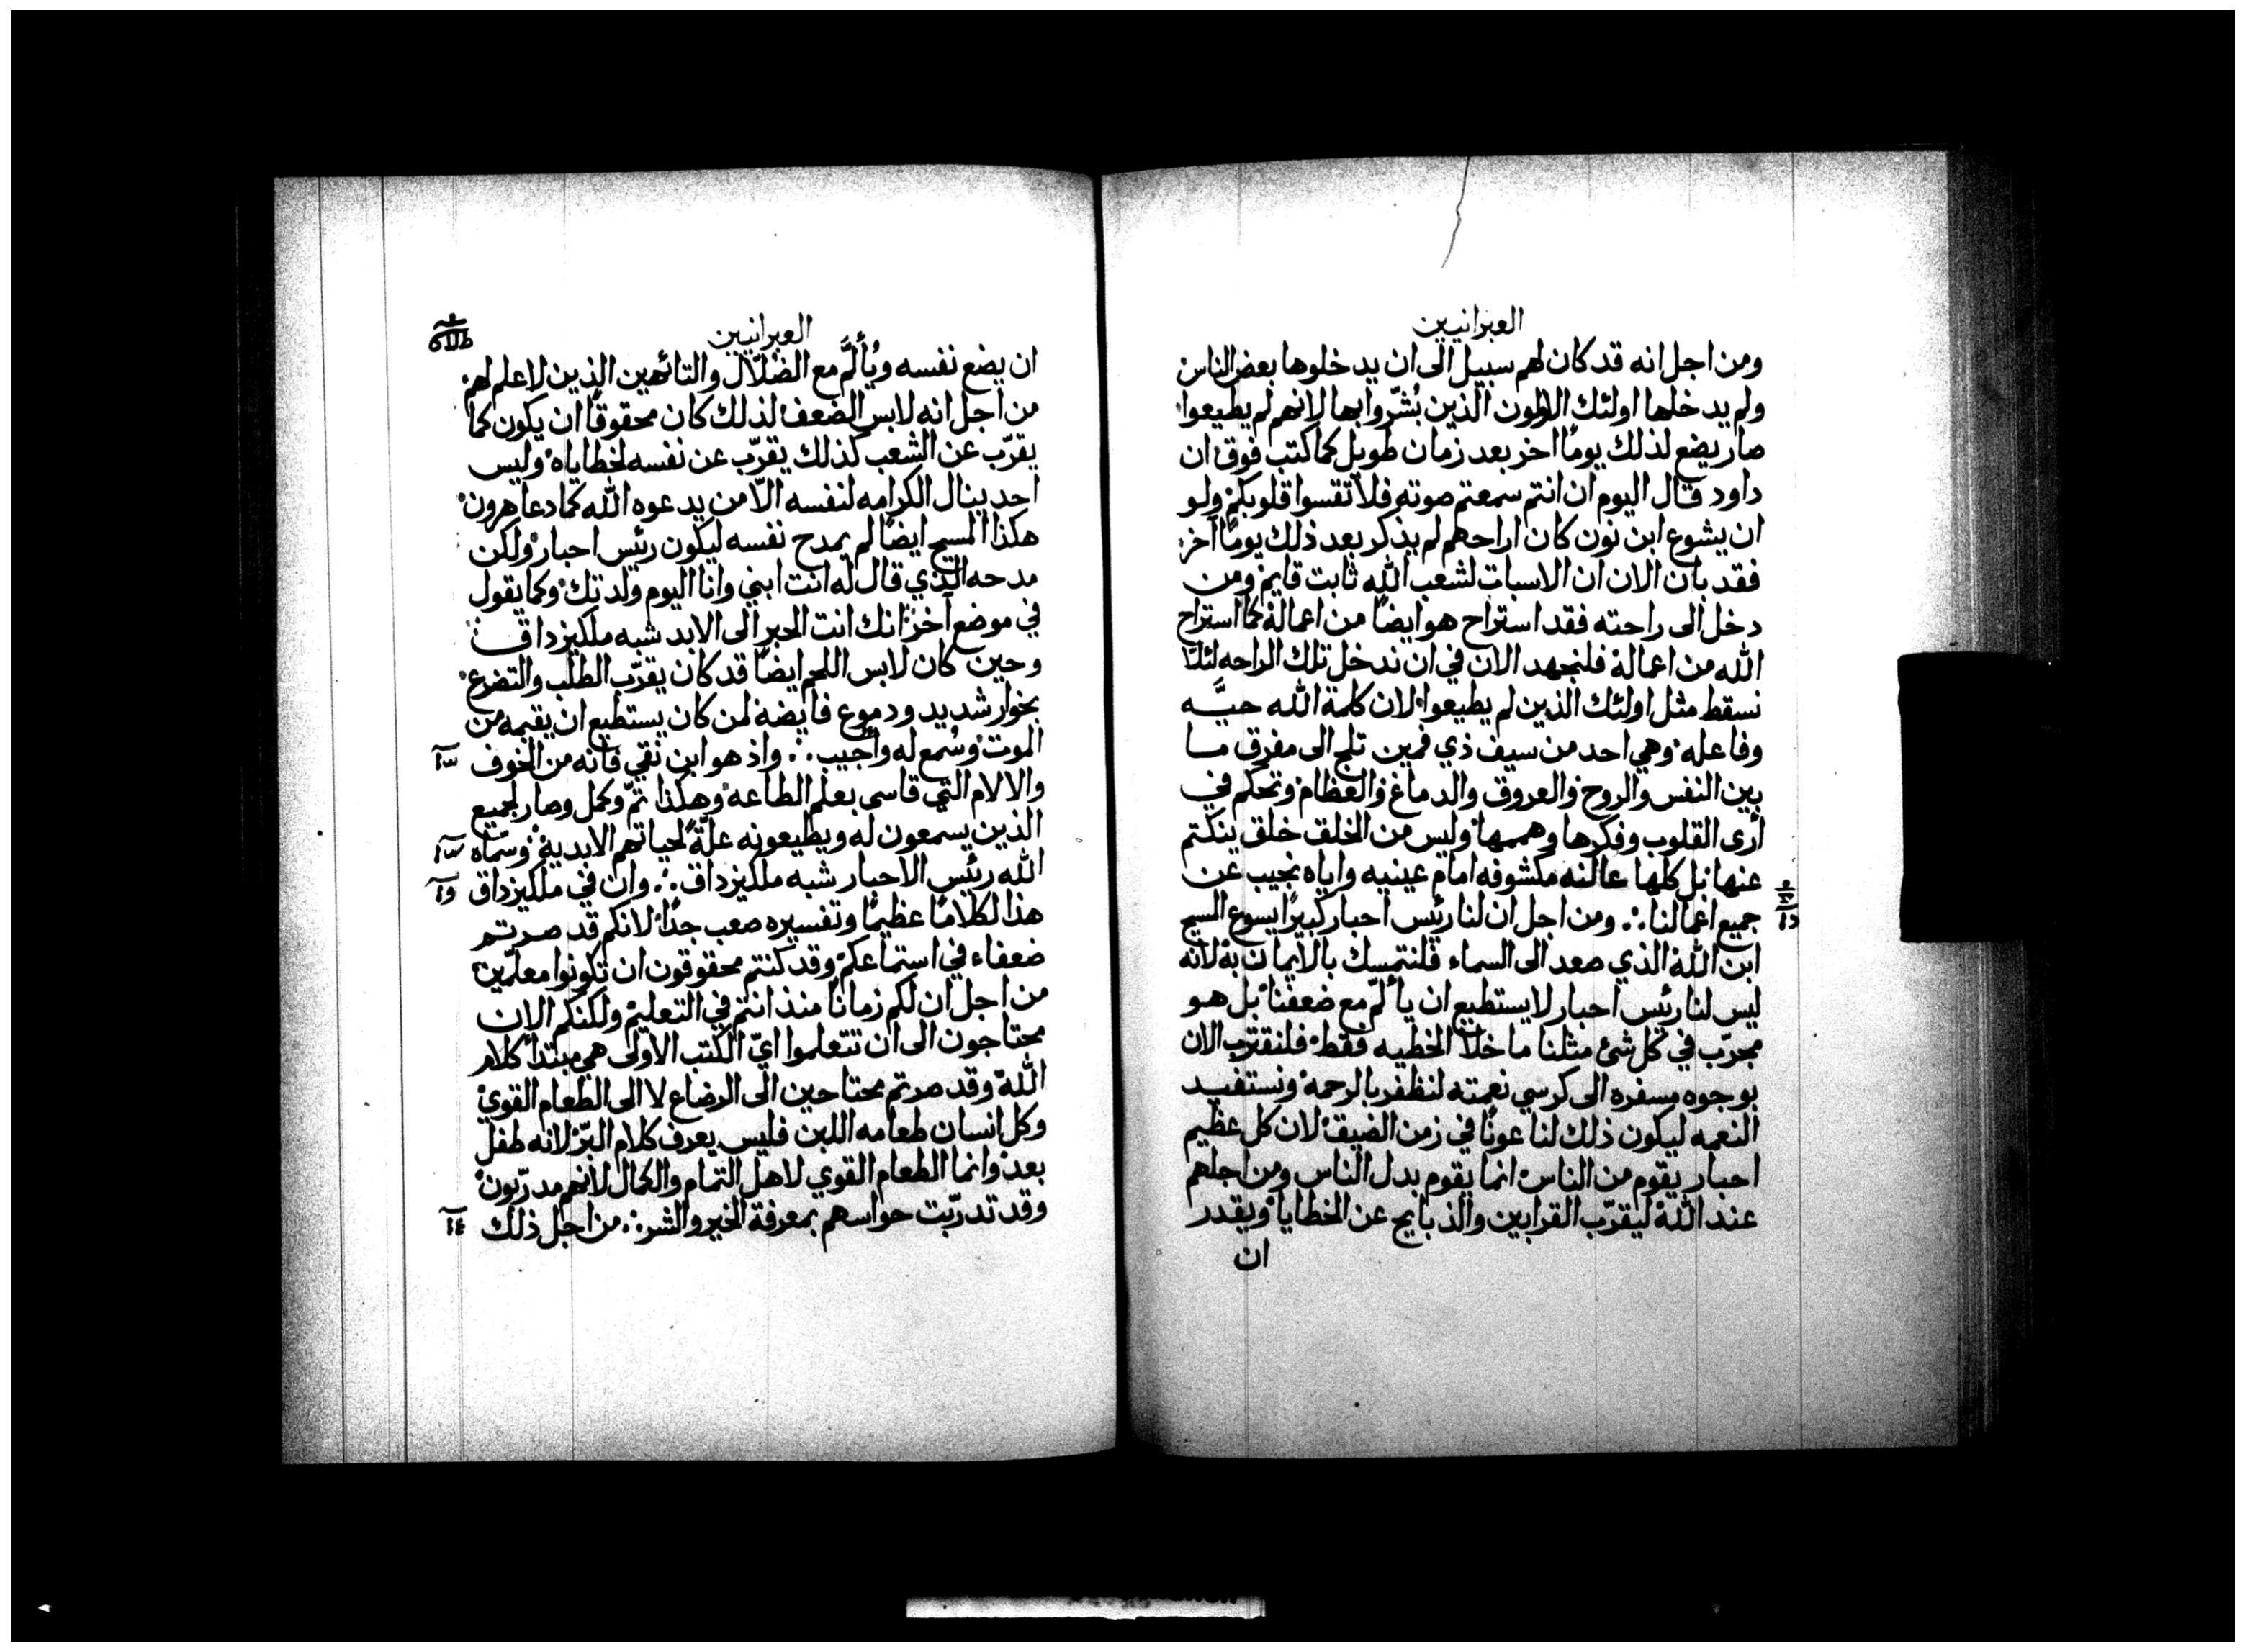 العبرانيين
ومن اجل انه قد كان لهم سبيل الى ان يدخلوها بعض الناس
ولم يدخلها اولئك الاولون الذين بُشّروا بها لانهم لم يطيعوا
صار يضع لذلك يومًا اخر بعد زمان طويل كما كتب فوق ان
داود قال اليوم ان انتم سمعتم صوته فلا تقسوا قلوبكم ولو
ان يشوع ابن نون كان اراحهم لم يذكر بعد ذلك يومًا آخر
فقد بان الان ان الاسبات لشعب الله ثابت قايم ومن
دخل الى راحته فقد استراح هو ايضًا من اعماله كما استراح
الله من اعماله فلنجهد الان في ان ندخل تلك الراحه لئلا
نسقط مثل اولئك الذين لم يطيعوا لان كلمة الله حيَّه
وفاعله وهي احد من سيف ذي فمين تلج الى مفرق ما
بين النفس والروح والعروق والدماغ والعظام وتحكم في
أرى القلوب وفكرها وهممها وليس من الخلق خلق ينكتم
عنها بل كلها عالنه مكشوفه امام عينيه واياه نجيب عن
جميع اعمالنا ∴ ومن اجل ان لنا رئيس احبار كبيرًا يسوع المسيح
ابن الله الذي صعد الى السماء فلنتمسك بالايمان به لانه
ليس لنا رئيس احبار لا يستطيع ان يألّم مع ضعفنا بل هو
مجرّب في كل شئ مثلنا ما خلا الخطيه فقط فلنقترب الان
بوجوه مسفره الى كرسي نعمته لنظفر بالرحمة ونستفيد
النعمه ليكون ذلك لنا عونًا في زمن الضيق لان كل عظيم
احبار يقوم من الناس انما يقوم بدل الناس ومن اجلهم
عند الله ليقرّب القرابين والذبايح عن الخطايا ويقدر
ان
العبرانيين
ان يضع نفسه ويُألَّم مع الضلال والتائهين الذين لا علم لهم
من اجل انه لابس الضعف لذلك كان محقوقًا ان يكون كما
يقرّب عن الشعب كذلك يقرّب عن نفسه لخطاياه وليس
احد ينال الكرامه لنفسه الّا من يدعوه الله كما دعا هرون
هكذا المسيح ايضًا لم يمدح نفسه ليكون رئيس احبار ولكن
مدحه الذي قال له انت ابني وانا اليوم ولدتك وكما يقول
في موضع آخر انك انت الحبر الى الابد شبه ملكيزداق
وحين كان لابس اللحم ايضًا قد كان يقرّب الطلب والتضرع
بخوار شديد ودموع فايضه لمن كان يستطيع ان يقيمه من
الموت وسُمع له وأُجيب ∴ واذ هو ابن نقي فانه من الخوف
والالام التي قاسى بعلم الطاعه وهكذا تمّ وكمل وصار لجميع
الذين يسمعون له ويطيعونه علّةً لحياتهم الابدية وسمّاه
الله رئيس الاحبار شبه ملكيزداق ∴ وان في ملكيزداق
هذا لكلامًا عظيمًا وتفسيره صعب جدًا لانكم قد صرتم
ضعفاء في استماعكم وقد كنتم محقوقون ان تكونوا معلّمين
من اجل ان لكم زمانًا منذ انتم في التعليم ولكنكم الان
محتاجون الى ان تتعلموا ايّ الكتب الاولى هي مبتدأ كلام
الله وقد صرتم محتاجين الى الرضاع لا الى الطعام القوي
وكل انسان طعامه اللبن فليس يعرف كلام البرّ لانه طفل
بعد وانما الطعام القوي لاهل التمام والكمال لانهم مدرّبون
وقد تدرّبت حواسهم بمعرفة الخير والشر ∴ من اجل ذلك